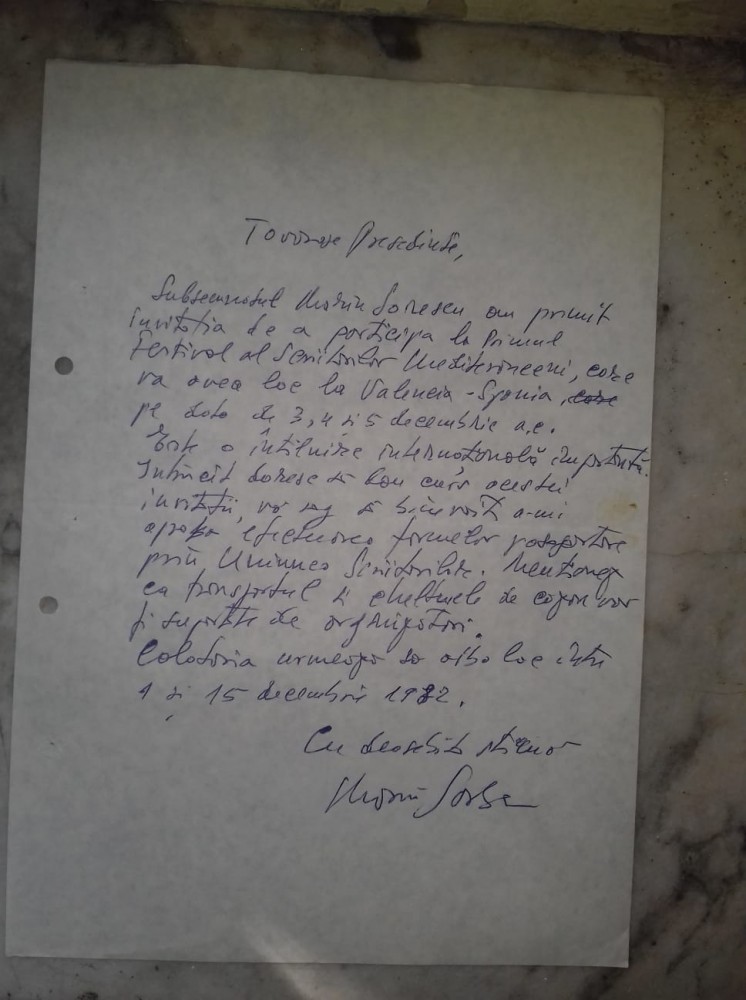 Tovarășe Președinte,
Subsemnatul Marin Sorescu am primit
invitația de a participa la Primul
Festival al Scriitorilor Mediteraneeni, care
va avea loc la Valencia - Spania, care
pe data de 3, 4 și 5 decembrie a.c.
Este o întîlnire internațională importantă.
Intrucît doresc să dau curs acestei
invitații, vă rog să binevoiți a-mi
aproba efectuarea formelor pașaportare
prin Uniunea Scriitorilor. Menționez
că transportul și cheltuielile de vor
fi suportate de organizatori.
Călătoria urmează să aibă loc între
1 și 15 decembrie 1982.
Cu deosebită stimă
Marin Sorescu